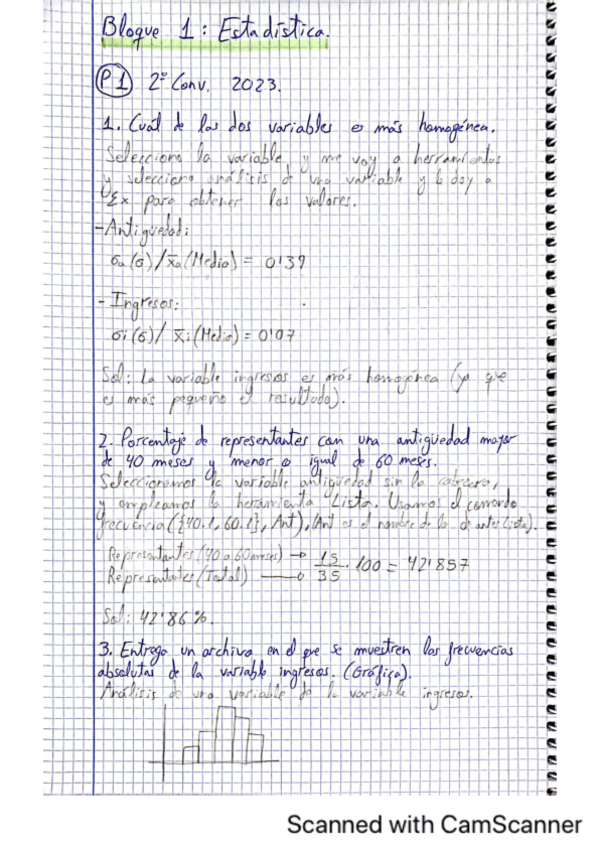 Bloque 1: Estadística.
P1 2º Conv. 2023.
1. Cuál de las dos variables es más homogénea.
Selecciono la variable y me voy a herramientas
y selecciono análisis de una variable y le doy a
Σx para obtener los valores.
- Antigüedad:
σa (σ) / x̄a (Media) = 0'39
- Ingresos:
σi (σ) / x̄i (Media) = 0'07
Sol: La variable ingresos es más homogénea (ya que
es más pequeño el resultado).
2. Porcentaje de representantes con una antigüedad mayor
de 40 meses y menor o igual de 60 meses.
Seleccionamos la variable antigüedad sin la cabecera,
y empleamos la herramienta Lista. Usamos el comando
frecuencia ({40.1, 60.1}, Ant), (Ant es el nombre de la lista).
Representantes (40 a 60 meses) → 15
Representantes (Total) → 35 · 100 = 42'857
Sol: 42'86 %.
3. Entrega un archivo en el que se muestren las frecuencias
absolutas de la variable ingresos. (Gráfica).
Análisis de una variable de la variable ingresos.
Scanned with CamScanner